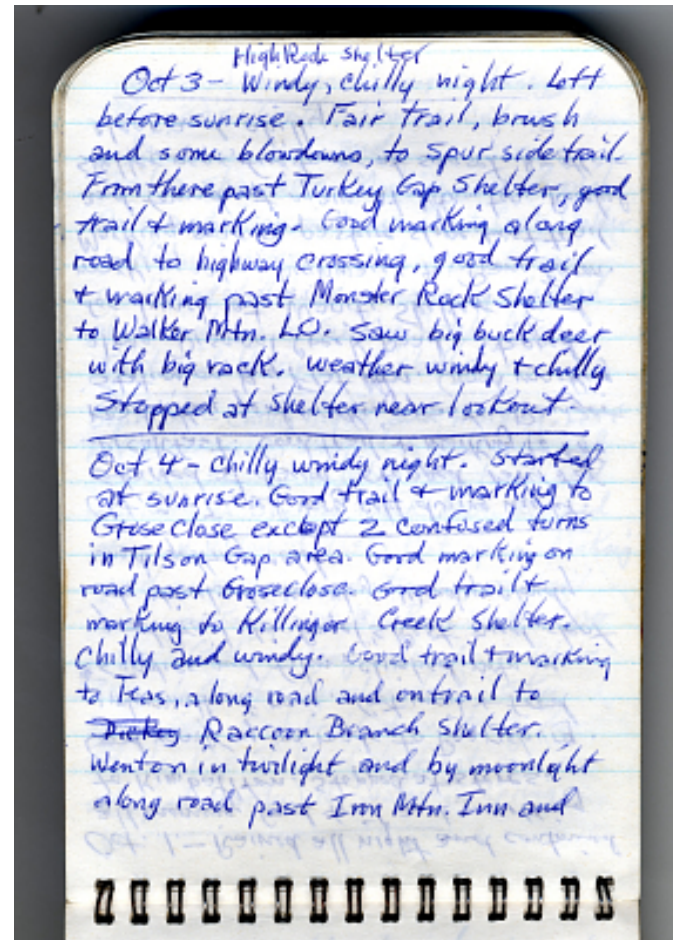 High Rock Shelter
Oct 3 - Windy, chilly night. Left
before sunrise. Fair trail, brush
and some blowdowns, to spur side trail.
From there past Turkey Gap Shelter, good
trail + marking. Good marking along
road to highway crossing, good trail
+ marking past Monster Rock Shelter
to Walker Mtn. L.O. Saw big buck deer
with big rack. Weather windy + chilly
Stopped at shelter near lookout.
Oct 4 - Chilly windy night. Started
at sunrise. Good trail + marking to
Groseclose except 2 confused turns
in Tilson Gap area. Good marking on
road past Groseclose. Good trail +
marking to Killinger Creek Shelter.
Chilly and windy. Good trail + marking
to Teas, along road and on trail to
Raccoon Branch Shelter.
Went on in twilight and by moonlight
along road past Iron Mtn. Inn and